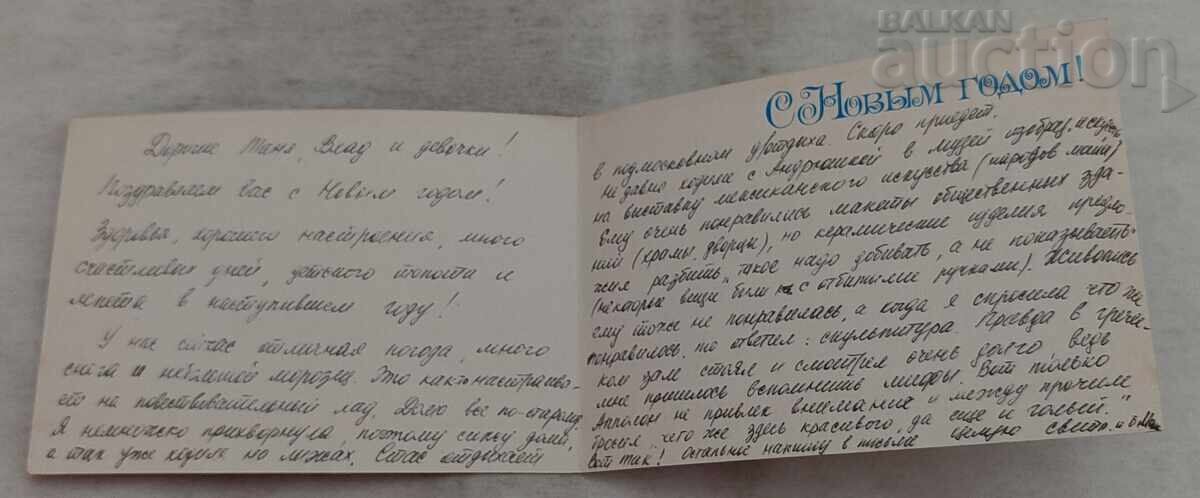 BALKAN
auction
Дорогие Таня, Влад и девочки!
Поздравляем вас с Новым годом!
Здоровья, хорошего настроения, много
счастливых дней, детского топота и
лепета в наступившем году!
У нас сейчас отличная погода, много
снега и небольшой морозец. Это как-то настраива-
ет на повествовательный лад. Дома все по-старому.
Я немножко прихворнула, поэтому сижу дома,
а так уже ходили на лыжах. Стас отдыхает
С Новым годом!
в подмосковном д/отдыха. Скоро приедет.
Недавно ходили с Андрюшкой в музей изобраз. искусств
на выставку мексиканского искусства (народов майя)
Ему очень понравились макеты общественных зда-
ний (храмы, дворцы), но керамические изделия предло-
жил разбить, "такое надо добивать, а не показывать"
(некоторые вещи были с отбитыми ручками). Живопись
ему тоже не понравилась, а когда я спросила что же
понравилось, то ответил: скульптура. Правда в гречес-
ком зале стоял и смотрел очень долго ведь
мне пришлось вспомнить мифы. Вот только
Апполон не привлек внимания и между прочим
спросил, "что же здесь красивого, да еще и голый."
Вот так! Остальное напишу в письме. Целую